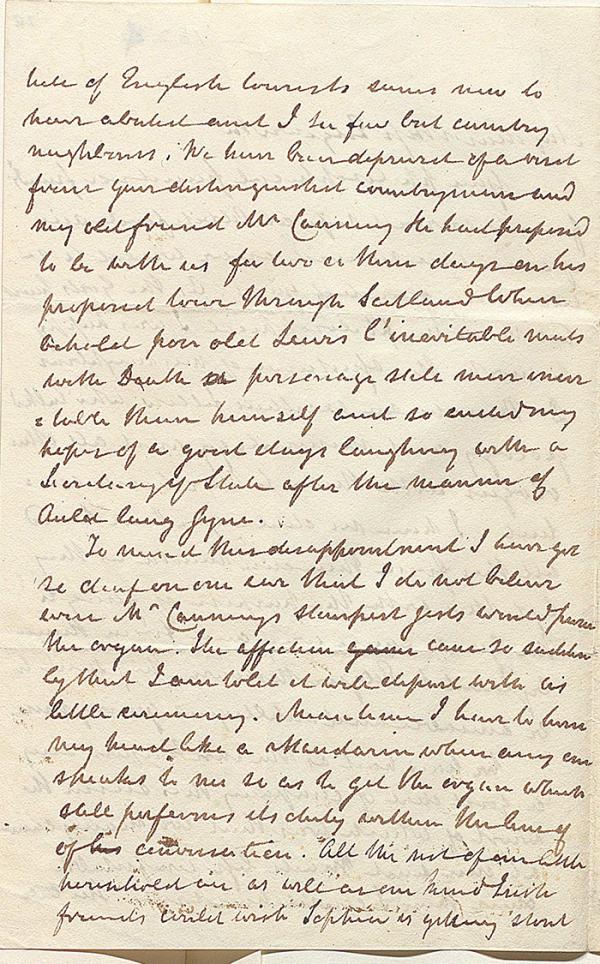 tide of English tourists seems now to
have abated and I see few but country
neighbours. We have been deprived of a visit
from your distinguishd countryman and
my old friend Mr Canning He had proposed
to be with us for two or three days on his
proposed tour through Scotland When
behold poor old Lewis l'inevitable meets
with Death a personage still more inevi
=table than himself and so ended my
hopes of a good days laughing with a
Secretary of State after the manner of
Auld lang Syne.
To mend this disappointment I have got
so deaf on one ear that I do not believe
even Mr Cannings sharpest jests would pierce
the organ. The affection came so sudden
ly that I am told it will depart with as
little ceremony. Meantime I have to turn
my head like a Mandarin when any one
speaks to me so as to get the organ which
still performs its duty within the line of
of conversation. All the rest of our little
household are as well as our kind Irish
friends could wish Sophia is getting stout